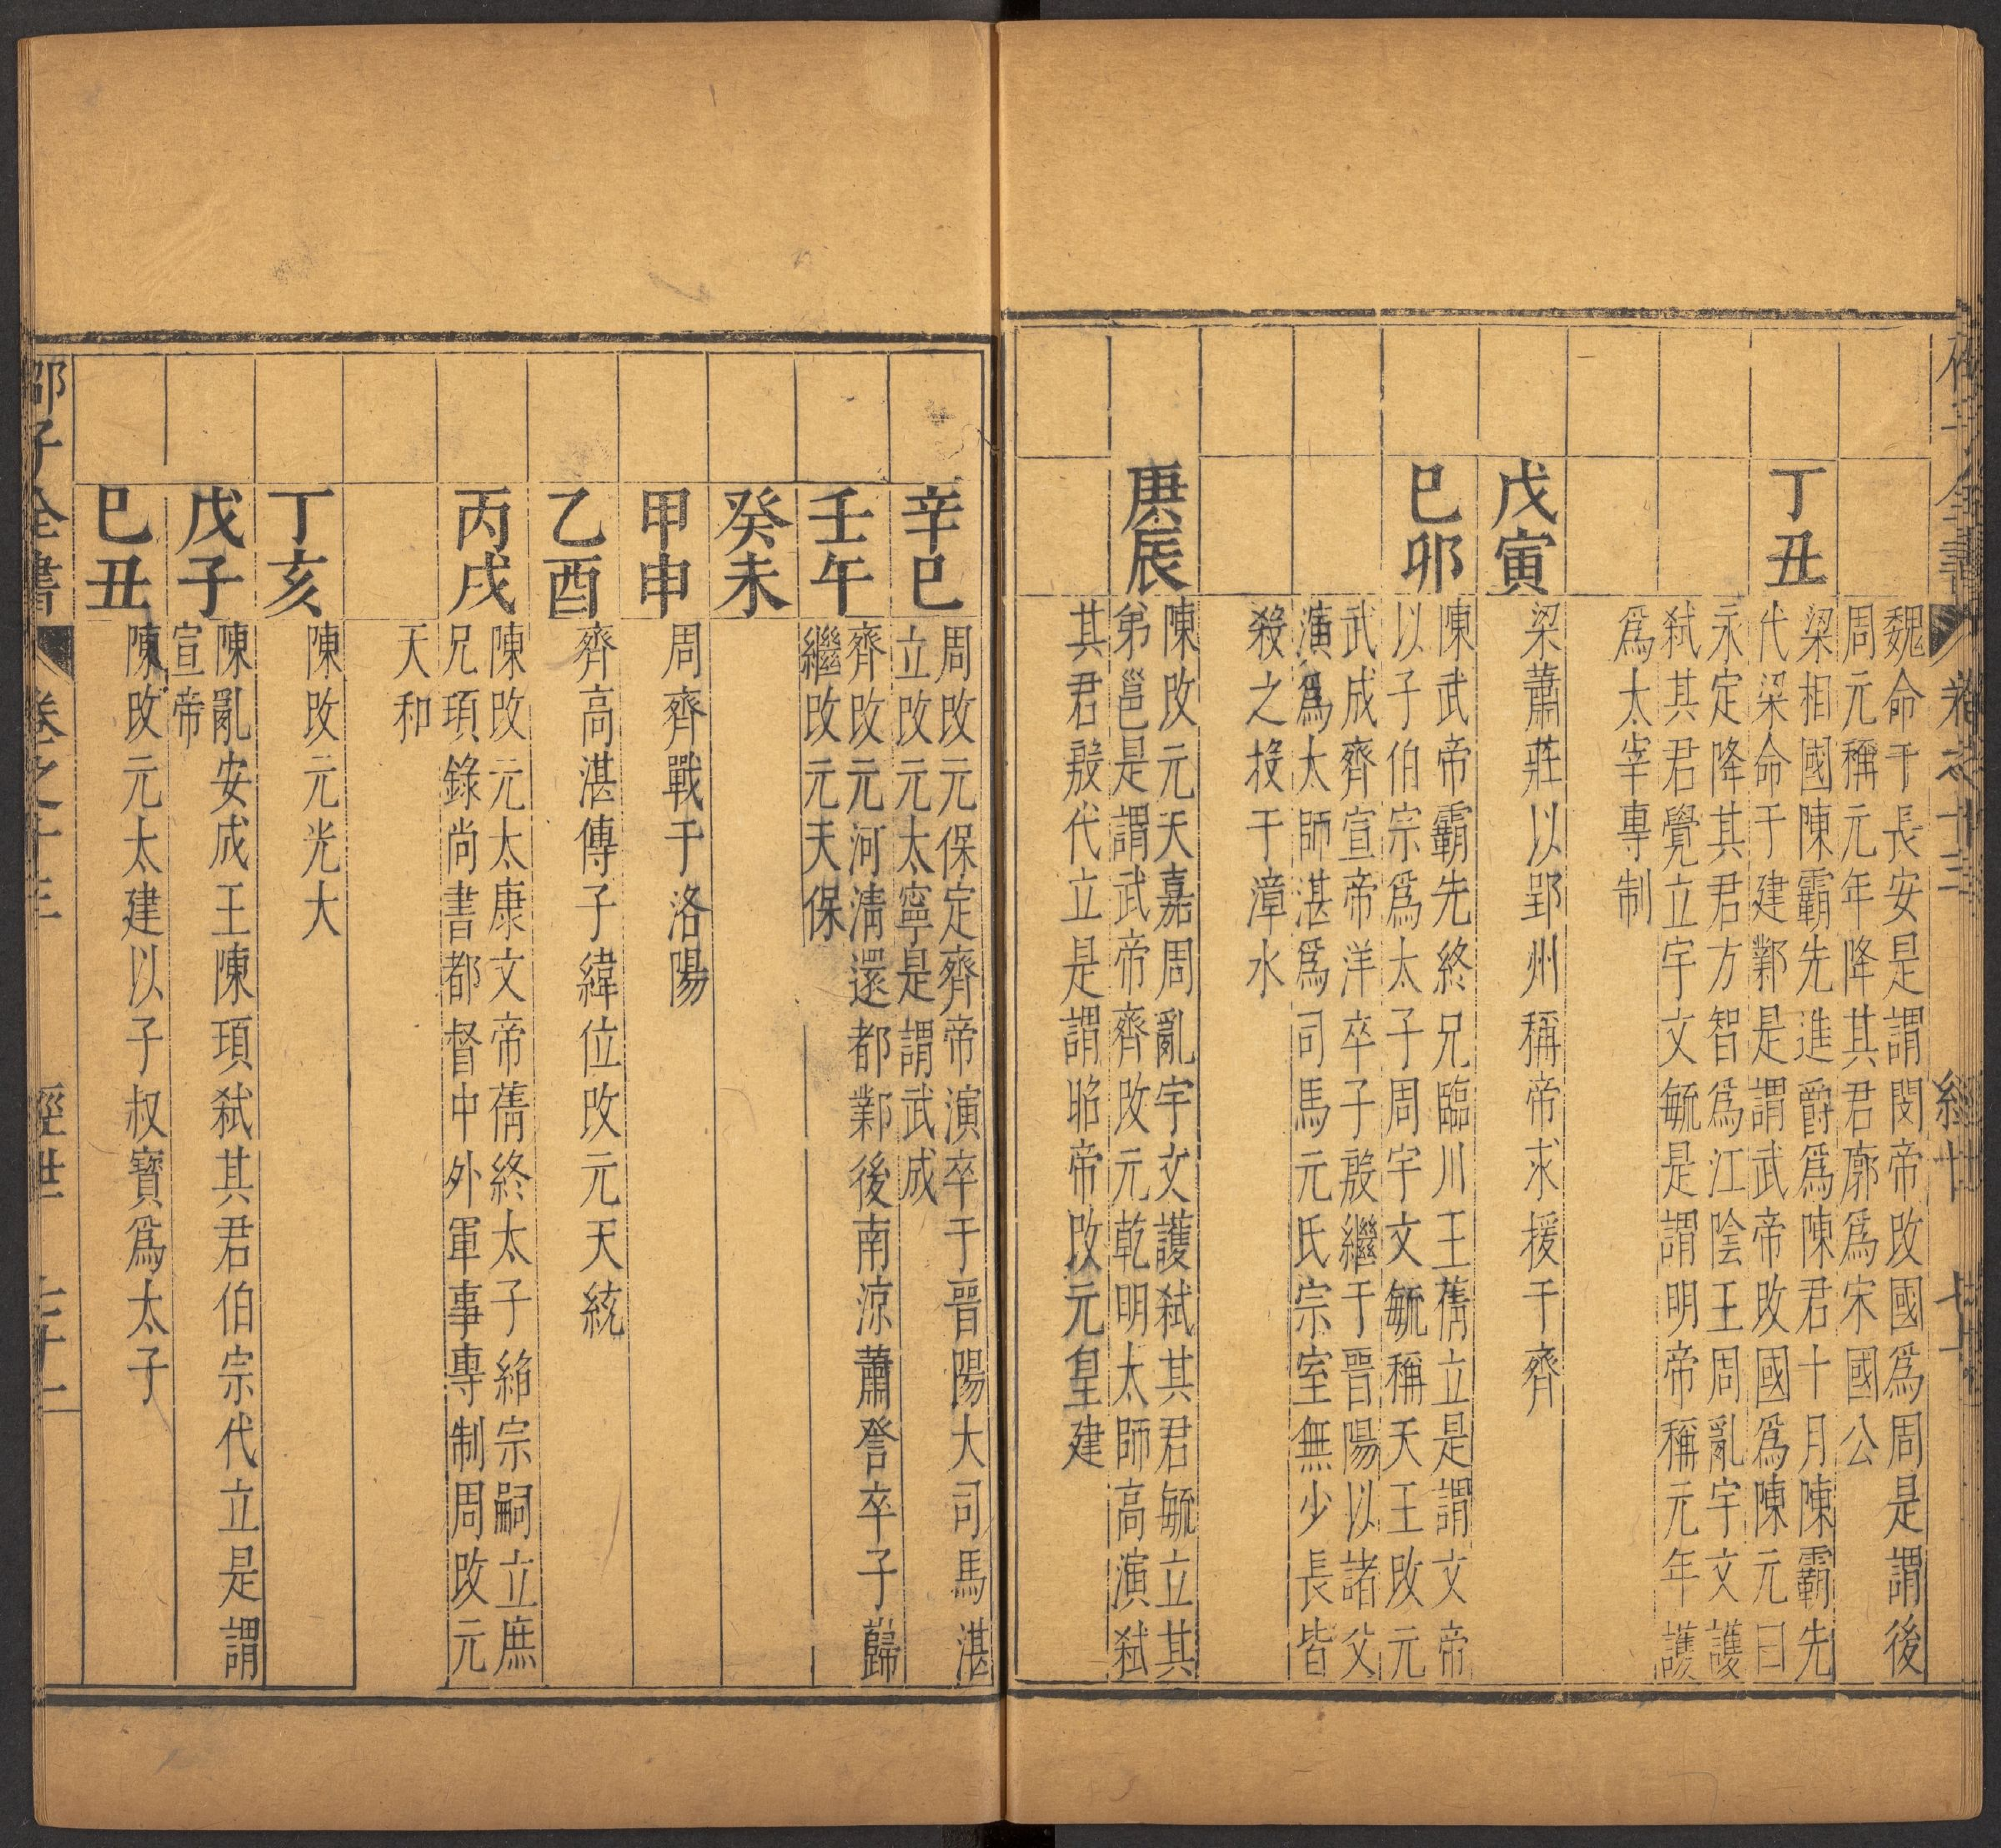 魏命于長安是謂閔帝改國爲周是謂後
周元稱元年降其君廓爲宋國公
丁丑
梁相國陳霸先進爵爲陳君十月陳霸先
代梁命于建鄴是謂武帝改國爲陳元曰
永定降其君方智爲江陰王周亂宇文護
弑其君覺立宇文毓是謂明帝稱元年護
爲太宰專制
戊寅
梁蕭莊以郢州稱帝求援于齊
巳卯
陳武帝霸先終兄臨川王蒨立是謂文帝
以子伯宗爲太子周宇文毓稱天王改元
武成齊宣帝洋卒子殷繼于晉陽以諸父
演爲太師湛爲司馬元氏宗室無少長皆
殺之投于漳水
庚辰
陳改元天嘉周亂宇文護弑其君毓立其
弟邕是謂武帝齊改元乾明太師高演弑
其君殷代立是謂昭帝改元皇建
辛巳
周改元保定齊帝演卒于晉陽大司馬湛
立改元太寧是謂武成
壬午
齊改元河清還都鄴後南涼蕭詧卒子巋
繼改元天保
癸未
甲申
周齊戰于洛陽
乙酉
齊高湛傳子緯位改元天統
丙戌
陳改元太康文帝蒨終太子絈宗嗣立庶
兄頊錄尚書都督中外軍事專制周改元
天和
丁亥
陳改元光大
戊子
陳亂安成王陳頊弑其君伯宗代立是謂
宣帝
巳丑
陳改元太建以子叔寶爲太子
邵子全書 卷之十三 經世